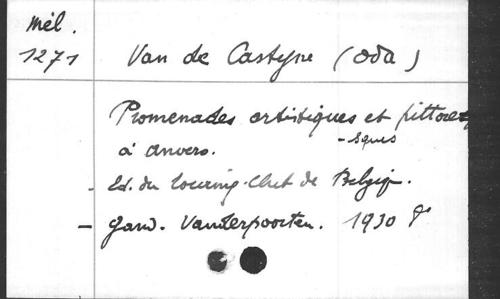 Mél.
1271
Van de Castyne (Oda)
Promenades artistiques et pittore-
-sques
à Anvers.
- Ed. du Touring-Club de Belgiq.
- Gand. Vanderpoorten. 1930 8°